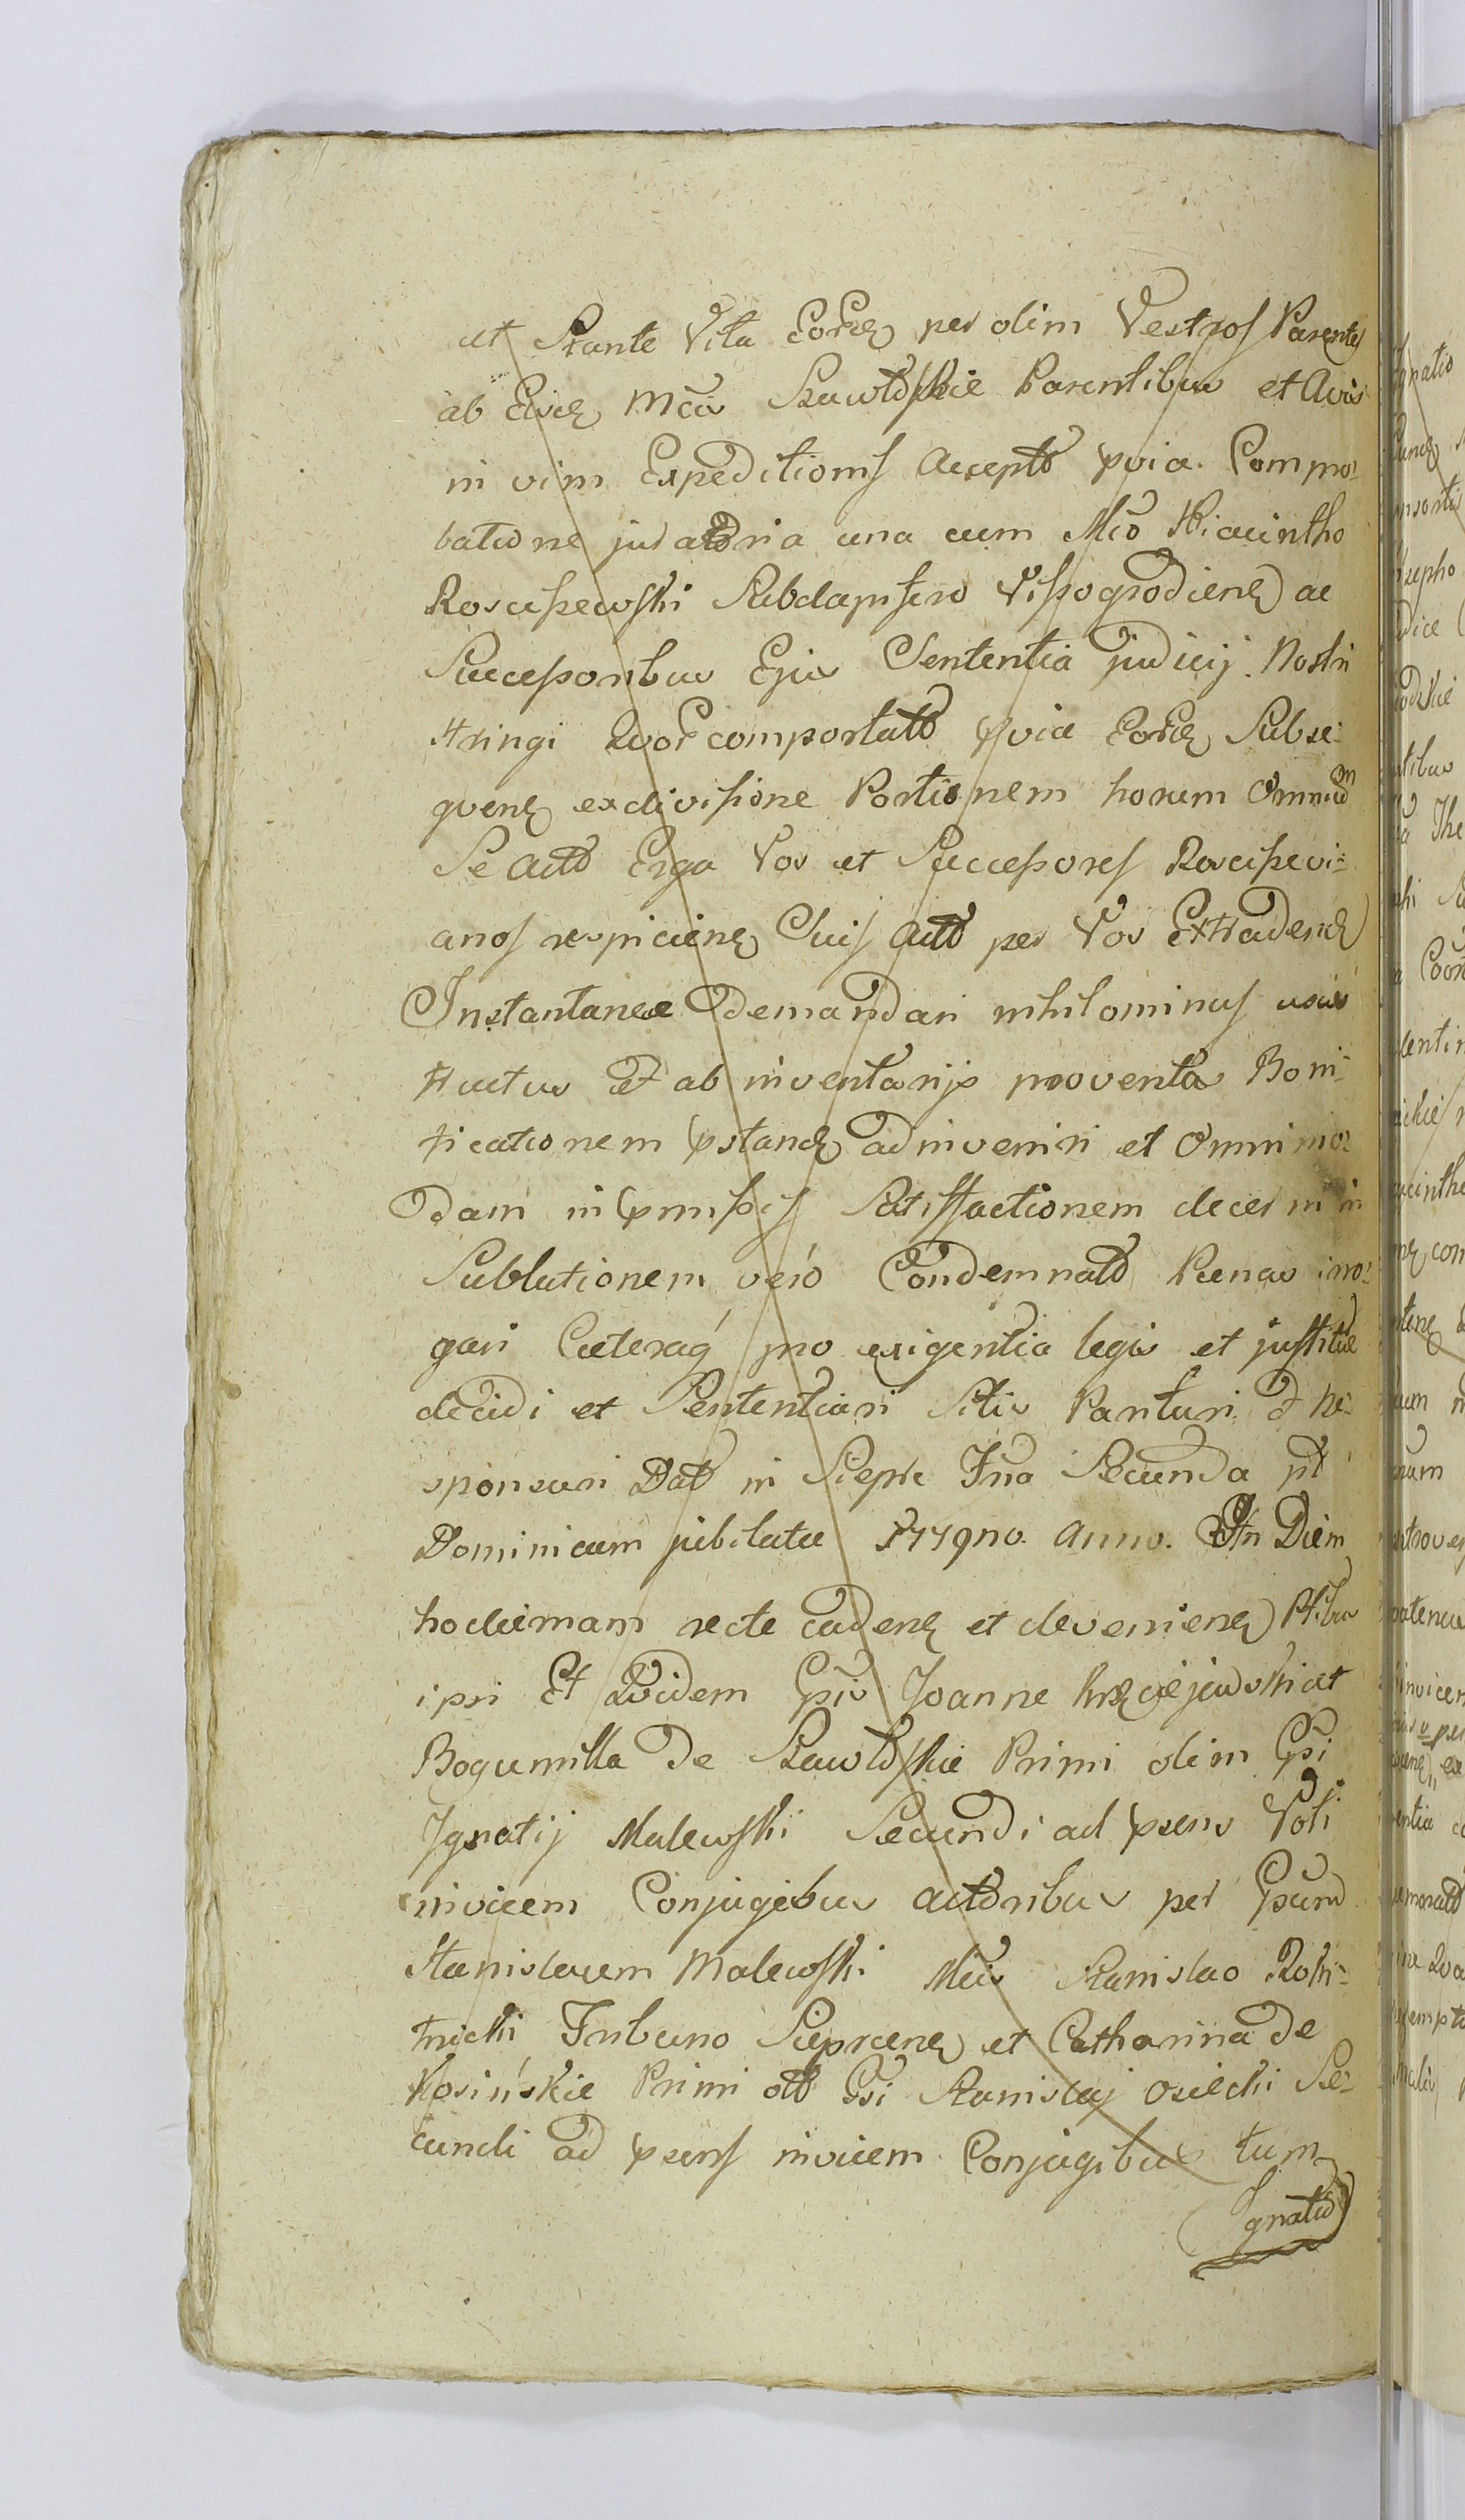 et Stante Vita Eord per olim Vestros Parentes
ab Eisd Mcis Szawłoskie Parentibus et Avis
in vim Expeditionis accepto pvia Compro-
batione juratoria una cum Mco Hiacintho
Rosciszewski Subdapifero Vissogrodiens ac
Successoribus Ejus Sententia judicij Nostri
stringi Quor comportato pvia Eord Subse-
quens ex divisione Portionem horum omnium
Se acto Erga Vos et Successores Roscisevi-
anos respiciens Suis acto per Vos Extradend
Instantanee demandari nihilominus usus
fructus et ab inventarijs proventus Boni-
ficationem pstand adinveniri et Omnimo-
dam in pmissis Satisfactionem decerni in
Sublationem vero Condemnato Paenas irro-
gari Caeteraq pro exigentia legis et justitiae
decidi et Sententiari Sitis Parituri et Re-
sponsuri Dat in Sieprc Fria Secunda pt
Dominicam jubilate 1779no. Anno. In Diem
hodiernam recte cadens et deveniens Ptibus
ipsi Et Quidem Gsis Joanne et
Bogumilla de Szawłoskie Primi olim Gsi
Ignatij Malewski Secundi ad psens Voti
invicem Conjugibus actoribus per Gsum
Stanislaum Malewski Mcis Stanislao Roki-
tnicki Tribuno Sieprcens et Catharina de
Kosińskie Primi olim Gsi Stanislaj Osiecki Se-
cundi ad psens invicem Conjugibus tum
Ignatio